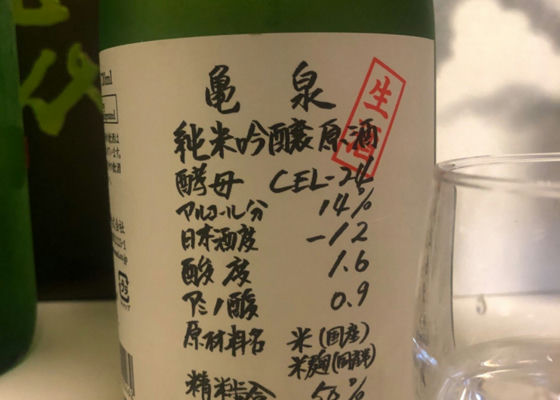 亀 泉
生酒
純米吟醸原酒
酵母 CEL-24
アルコール分 14%
日本酒度 -12
酸度 1.6
アミノ酸 0.9
原材料名 米(国産)
米麹(同上)
精米歩合 50%